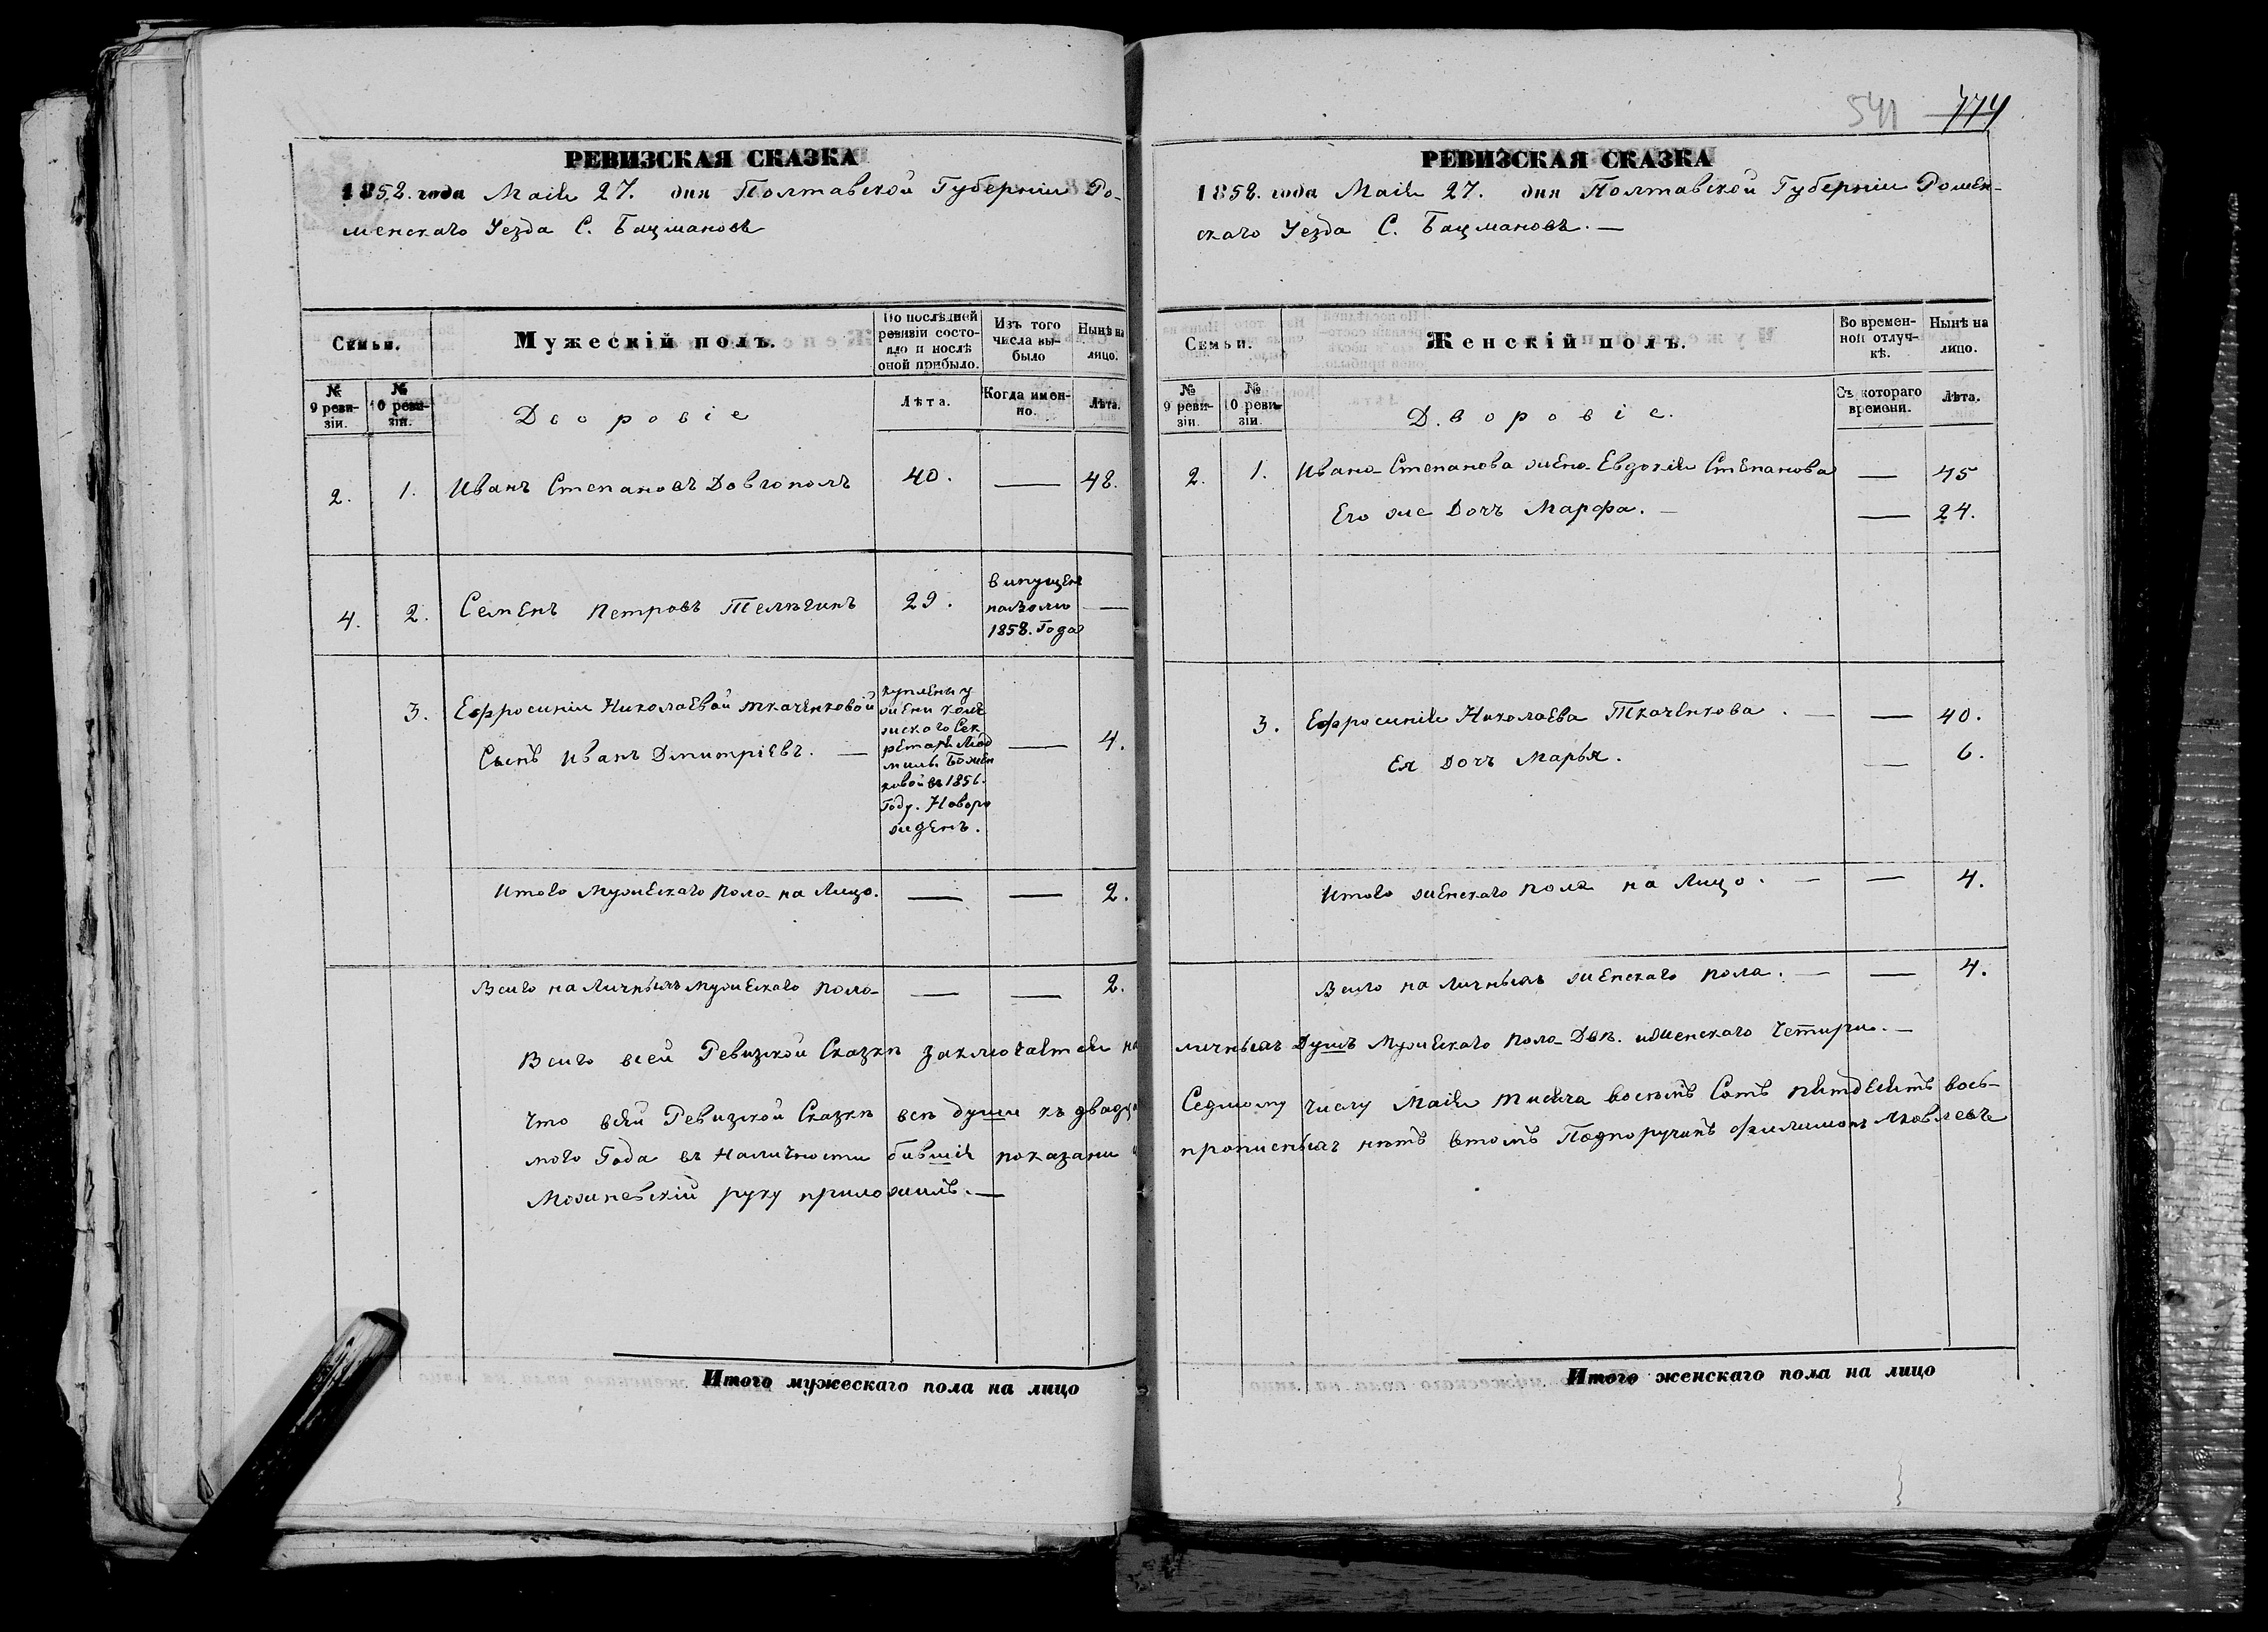 541 774
РЕВИЗСКАЯ СКАЗКА
1858. года Маія 27. дня Полтавской Губерніи Ро-
менскаго Уезда С. Бацмановъ
Семьи.
Мужескій полъ.
По послѣдней ревизіи состо-яло и послѣ оной прибыло.
Изъ того числа вы-было
Нынѣ на лицо.
№ 9 реви-зіи.
№ 10 реви-зіи.
Дворовіе
Лѣта.
Когда имен-но.
Лѣта.
2. 1. Иванъ Степановъ Довгополъ 40. — 48.
4. 2. Семенъ Петровъ Телѣгинъ 29.
випущен
на волю
1858. Года
—
3. Ефросиніи Николаевой Ткаченковой
Сынъ Иванъ Дмитріевъ. —
куплены у
жени колѣ
жскаго Сек
ретаря Люд
милы Божен
ковой въ 1856.
Году. Новоро
жденъ.
— 4.
Итого Мужескаго пола на Лицо. — — 2.
Всиго на Личныхъ мужескаго пола — — 2.
Всиго всей Ревизкой Сказкѣ заключается на
что всей Ревизкой Сказкѣ всѣ души къ двадца
мого Года въ Наличности бившія показани
Можневскій руку приложилъ. —
Итого мужескаго пола на лицо
РЕВИЗСКАЯ СКАЗКА
1858. года Маія 27. дня Полтавской Губерніи Ромен-
скаго Уезда С. Бацмановъ. —
Семьи.
Женскій полъ.
Во времен-ной отлуч-кѣ.
Нынѣ на лицо.
№ 9 реви-зіи.
№ 10 реви-зіи.
Дворовіе.
Съ котораго времени.
Лѣта.
2. 1. Ивана Степанова жена Евдокія Степанова — 45
Его же Дочъ Марфа. — — 24.
3. Ефросинія Николаева Ткаченкова. — — 40.
Ея Дочъ Марья. — 6.
Итого женскаго пола на Лицо. — — 4.
Всиго на Личныхъ женскаго пола. — — 4.
личныхъ Душъ Мужескаго пола Двѣ. и женскаго Четири. —
Седмому числу Маія тисяча восемъ Сотъ пятдесятъ вось-
прописныхъ нѣтъ втомъ Подпоручикъ Филимонъ Яковлевъ
Итого женскаго пола на лицо